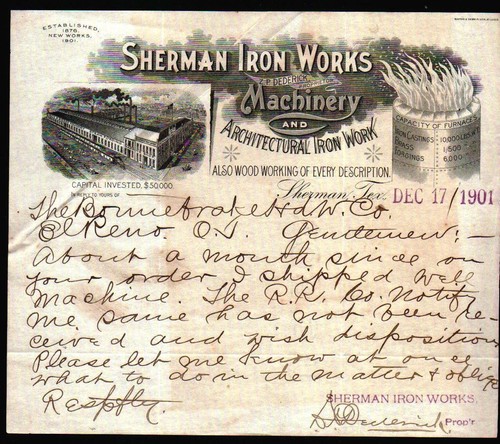 ESTABLISHED,
1876.
NEW WORKS,
1901.
SHERMAN IRON WORKS
DEDERICK
Machinery
AND
ARCHITECTURAL IRON WORK
ALSO WOOD WORKING OF EVERY DESCRIPTION.
CAPACITY OF FURNACES
IRON CASTINGS 10,000 LBS.
BRASS 1,500
FORGINGS 6,000
CAPITAL INVESTED, $50,000.
IN REPLY TO YOURS OF
Sherman, Tex. DEC 17/1901
The Bonnebrake Hd.W. Co.
El Reno. O.T. Gentlemen;-
About a month since on
your order I shipped well
machine. The R.R. Co. notify
me same has not been re-
ceived and wish disposition
Please let me know at once
what to do in the matter & oblige
Respfly.
SHERMAN IRON WORKS,
Dederick Prop'r